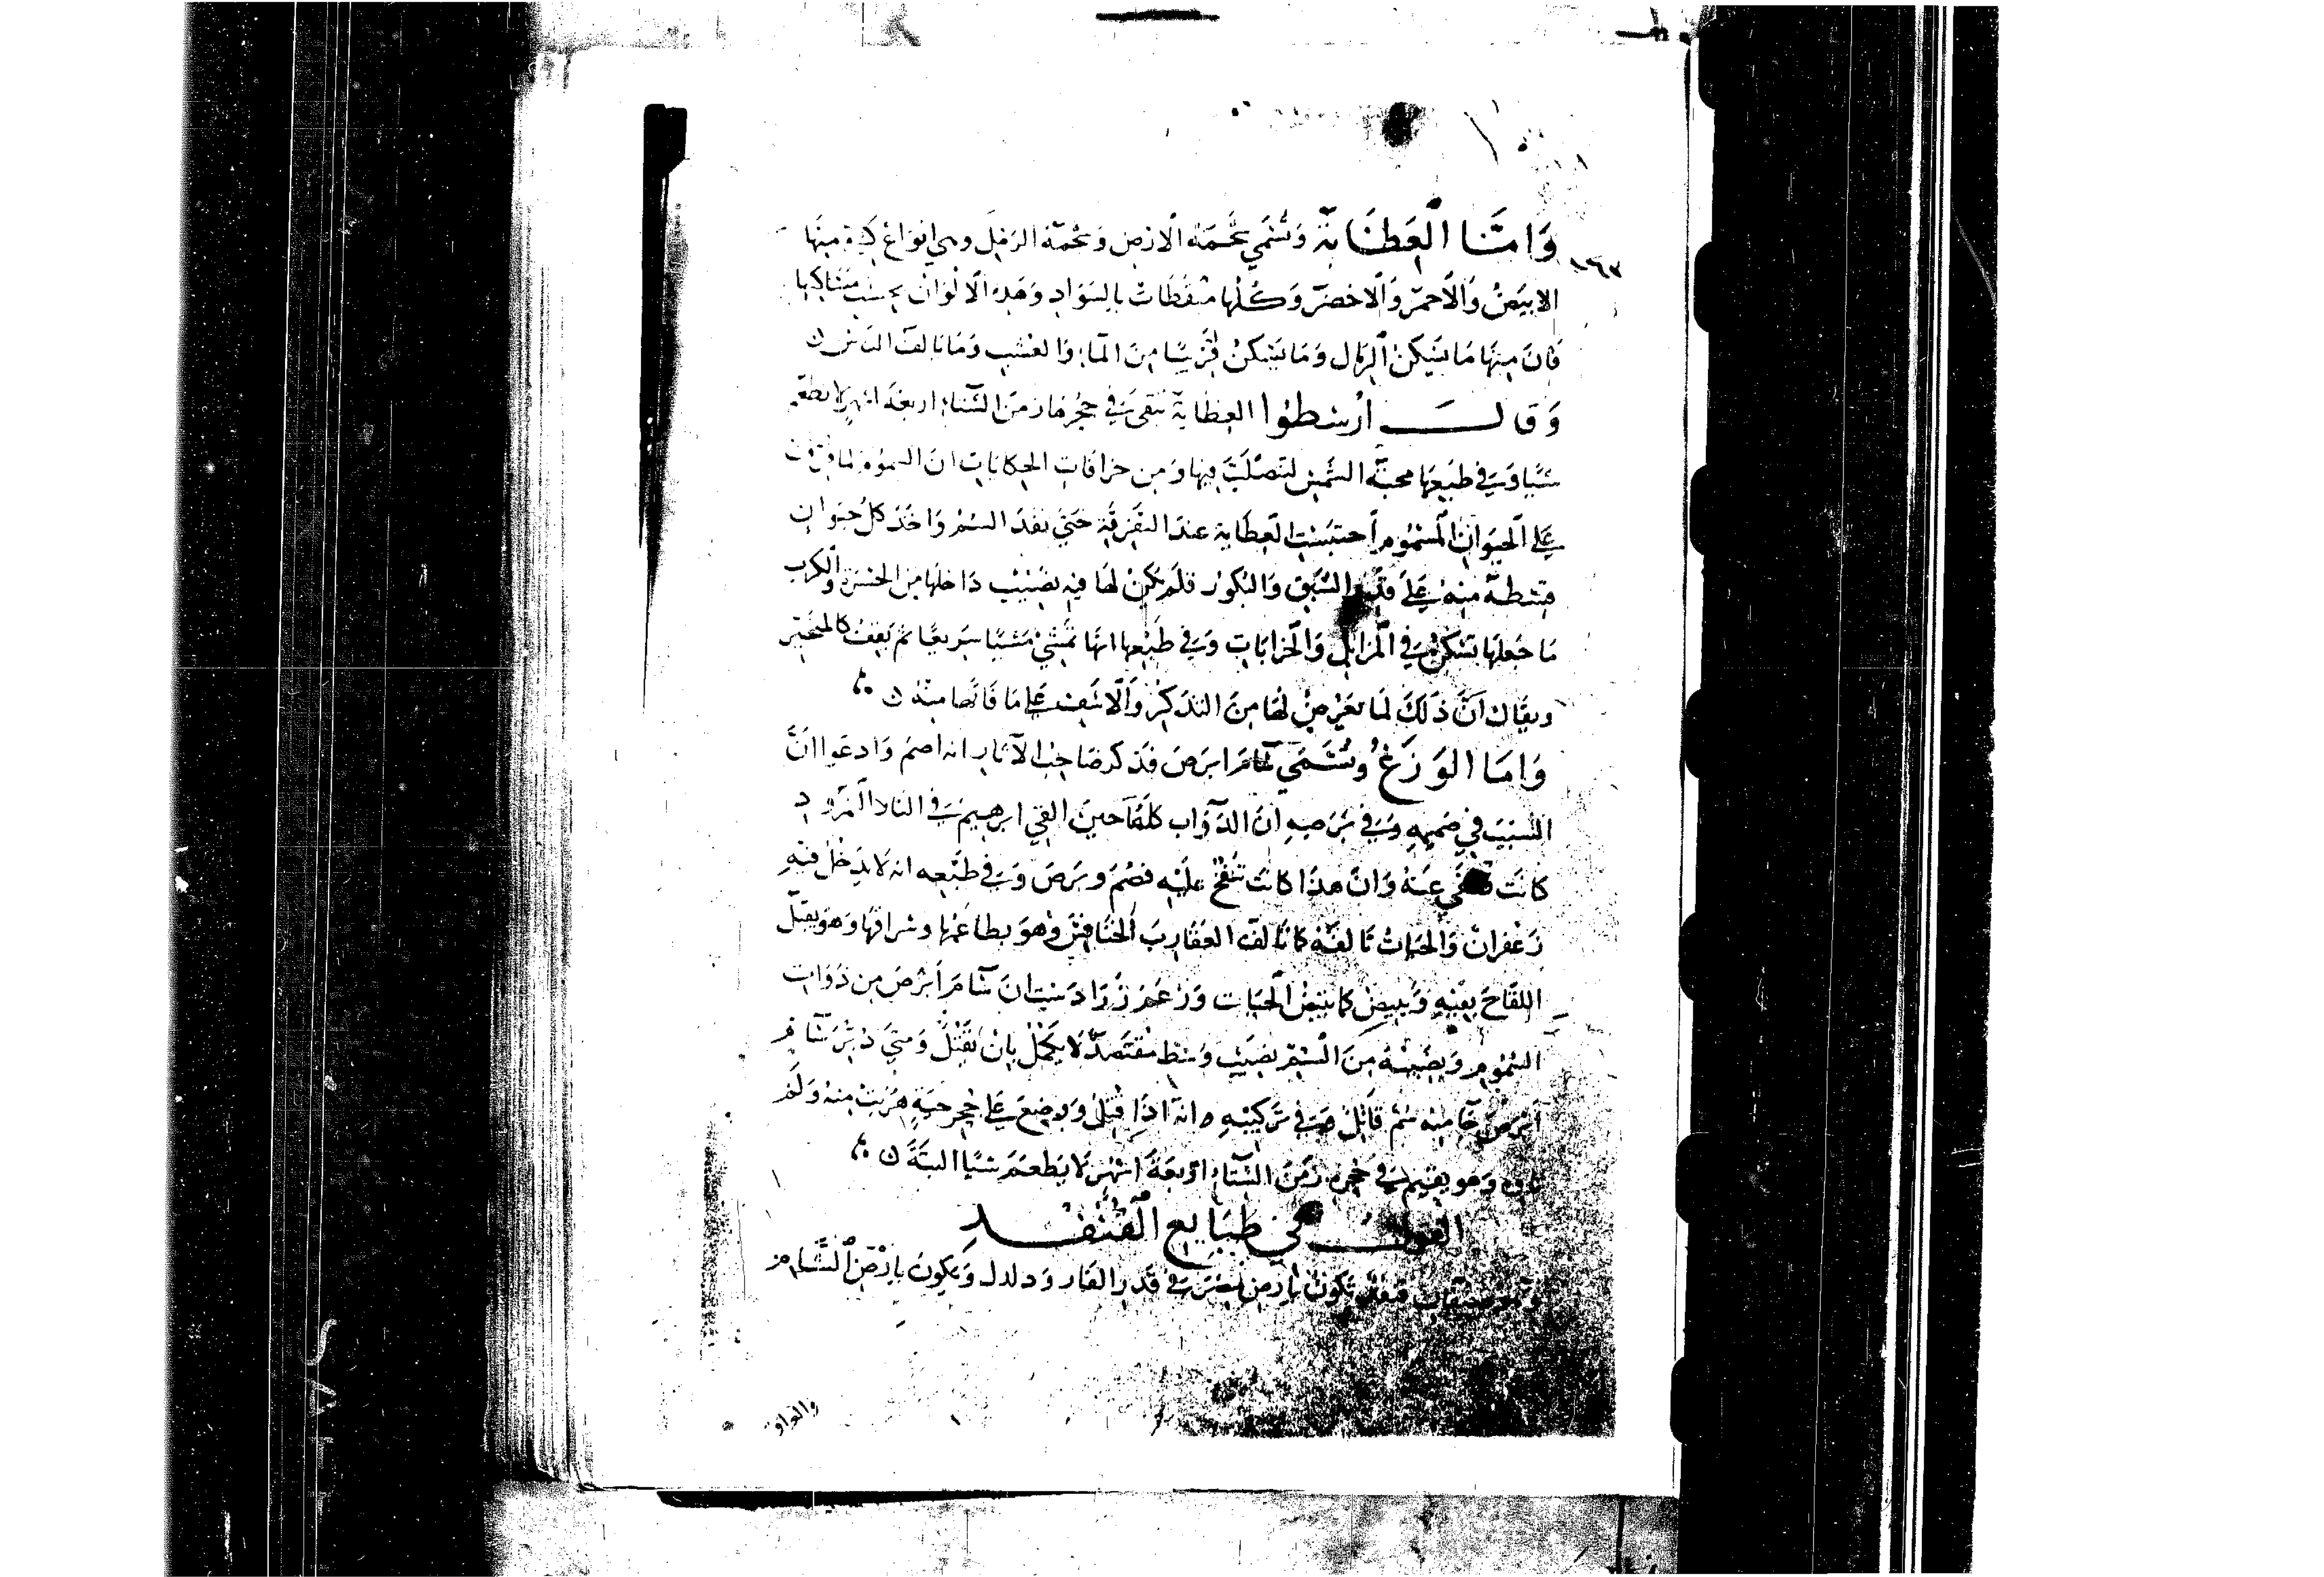 ١٦٣
وَامَّا العَظَايَةُ وَتُسَمَّي شَحْمَة الارْضِ وَشَحْمَة الرَمْل وهي انوَاعْ كثيرة مِنهَا
الابيَضُ وَالاحمَرّ وَالاخضَرّ وَكُلهَا منقَطَاتْ بالسَوَادِ وَهَذِهِ الالْوَانْ بحسَبِ مَسَاكِنِهَا
فَانَ مِنهَا مَا يَسْكنُ الرمَال وَمَا يَسْكنُ قَرِيبًا مِنَ المآء وَالعُشبِ وَمَا يَالفُ النَاس
وَقَالَ ارْسْطُوا العِظَايَة تبقى في حجُرِهَا زمَن الشتَاء اربعَة اشهرٍ لا تطعَم
شَيًا وَفي طَبعِهَا محبة الشَمْسِ لتَصلبَ فِيهَا وَمِن خرافَاتِ الحِكَايَاتِ انَ السمُوم لما فرقت
عَلى الحيَوَان المسْمُومِ احتبَسَتِ العِظَاية عندَ التفرِقَةِ حَتي نفدَ السُم وَاخذ كل حيوَان
قسْطهُ منهُ عَلَى قدرِ السَبَقِ وَالبُكورْ فلَم يَكنْ لهَا فِيهِ نصِيب دَاخلهَا مِن الحَسْرةِ والكربِ
مَا جَعلهَا تسْكنُ في المزابِلِ وَالخرابَاتِ وَفي طَبْعِهَا انهَا تمشي مَشيًا سَرِيعًا ثم تقِفُ كالمتحَير
ويقَال انَّ ذَلكَ لمَا يعرِضُ لهَا مِنَ التذكرِ وَالاسَفِ عَلى مَا فَاتهَا منهُ
وَامَا الوَزَغُ وُتسَمَي سَامَ ابرَصَ فذكر صَاحِبُ الآثَارِ انه اصم وَادعَوا انَّ
السَبَبَ في صَمَمِهِ وَفي بَرَصِهِ انَ الدَوَاب كلهَا حينَ القي ابرهِيم في النار النمرود
كانَت تطفي عَنهُ وَانَ هذَا كانَتْ تنفخُ علَيهِ فصُمَ وبَرَصَ وَفي طَبْعِهِ انه لا يَدخل فيهِ
زعْفرانْ وَالحَيَاتُ تَالفهُ كمَا تَالفُ العقَارِبَ الخنَافِسُ وَهوَ يطاعِمُهَا ويشرَافهَا وَهوَ يقبَل
اللقَاحَ بفِيهِ وَيَبيضُ كمَا تبيضُ الحَيَات وَزَعَمَ زَرَادَشت انَ سَامَ أبرَصَ مِن ذوَاتِ
السُمُومِ وَنصِيبُهُ مِنَ السُمِ نصِيب وسَط مقتصدٌ لا يَكملُ بانْ يَقتُلَ وَمتي دُبرَ سَامُ
أبرَصَ جَآ مِنه سُم قَاتِل وَفي تَركيبِهِ انه اذَا قُتلَ وَوضِعَ عَلى جُحرِ حَيَةٍ هرَبت منهُ وَلَم
وَهو يقيمُ في جُحرهِ زَمَنَ الشتآءِ اربعَةَ اشهُرٍ لا يَطعَمُ شيًا البتَةَ
القولُ في طبَايع القُنْفُدِ
وَهو صِنفَان قنفُد يَكونُ بارضِ مصرَ في قَدرِ الفَار وَدلدل وَيكونُ بارْضِ الشَّامِ
والعراق